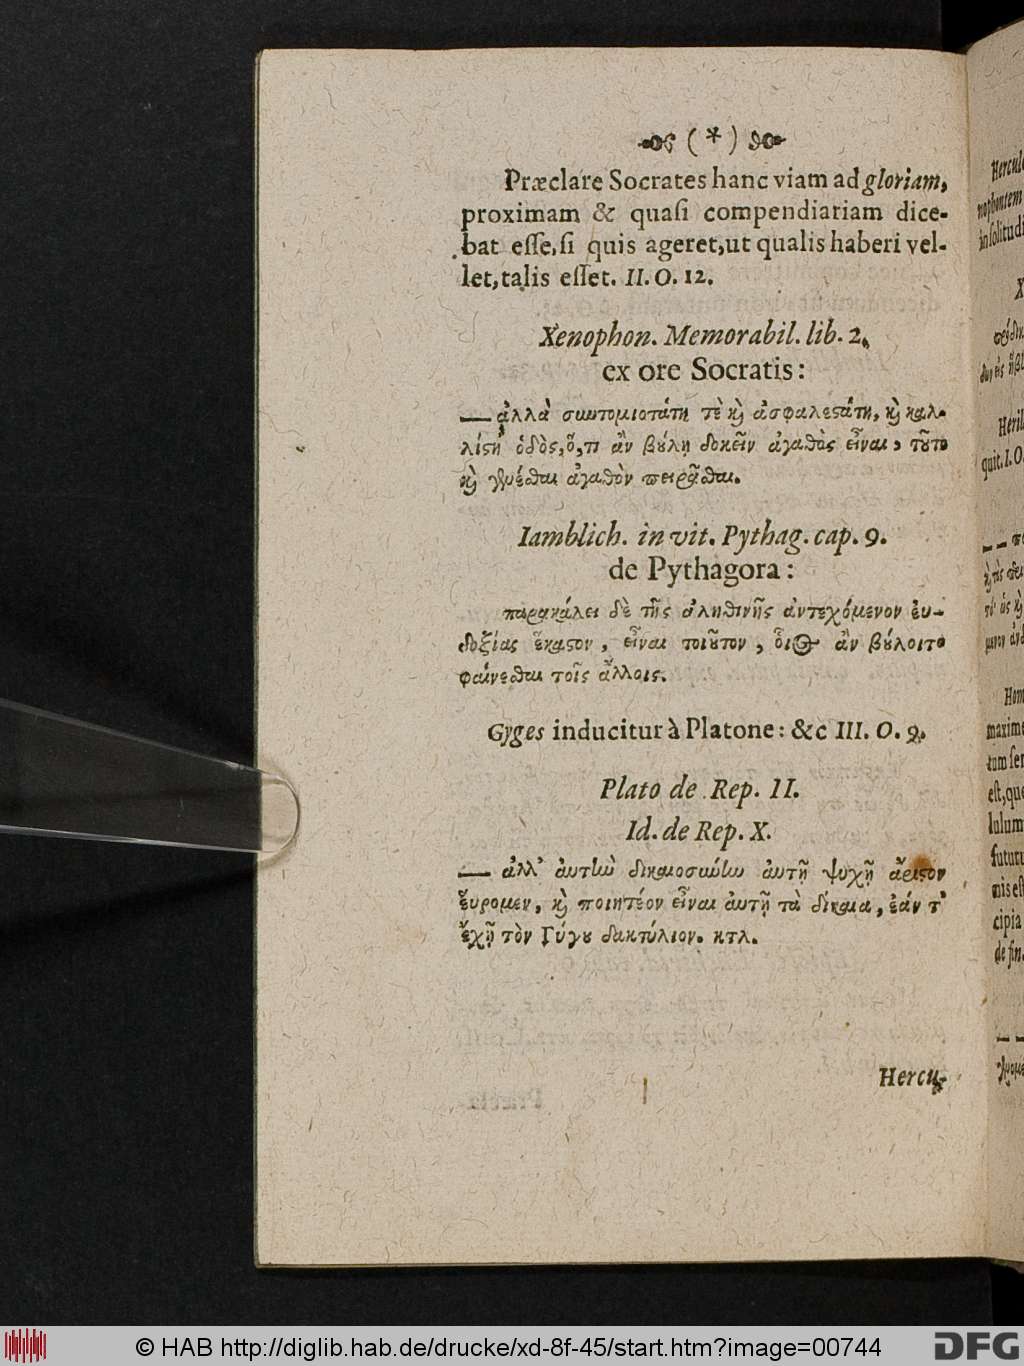 (*)
Præclare Socrates hanc viam ad gloriam,
proximam & quaſi compendiariam dice-
bat eſſe, ſi quis ageret, ut qualis haberi vel-
let, talis eſſet. II. O. 12.
Xenophon. Memorabil. lib. 2.
ex ore Socratis:
— ἀλλὰ συντομωτάτη τὲ καὶ ἀσφαλεστάτη, καὶ καλ-
λίστη ὁδὸς, ὅ, τι ἂν βούλῃ δοκεῖν ἀγαθὸς εἶναι, τοῦτο
καὶ γενέσθαι ἀγαθὸν πειρᾶσθαι.
Iamblich. in vit. Pythag. cap. 9.
de Pythagora:
παρακάλει δὲ τῆς ἀληθινῆς ἀντεχόμενον ἐυ-
δοξίας ἕκαστον, εἶναι τοιοῦτον, οἷος ἂν βούλοιτο
φαίνεσθαι τοῖς ἄλλοις.
Gyges inducitur à Platone: &c III. O. 9.
Plato de Rep. II.
Id. de Rep. X.
— ἀλλ' ἀυτὼ δικαιοσύνην ἀυτῇ ψυχῇ ἄριστον
ἕυρομεν, καὶ ποιητέον εἶναι ἀυτῇ τὰ δίκαια, ἐάν τ'
ἔχῃ τὸν Γύγου δακτύλιον. κτλ.
Hercu-
Hercule
nophontem
in ſolitudi
quit. I. O.
maxime
futuru
cipia
de fin.
© HAB http://diglib.hab.de/drucke/xd-8f-45/start.htm?image=00744
DFG